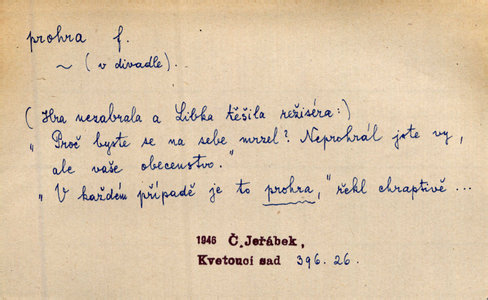 prohra f.
~ (v divadle).
(Hra nezabrala a Libka těšila režiséra:)
„Proč byste se na sebe mrzel? Neprohrál jste vy,
ale vaše obecenstvo."
„V každém případě je to prohra," řekl chraptivě ...
1946 Č. Jeřábek,
Kvetoucí sad 396. 26.